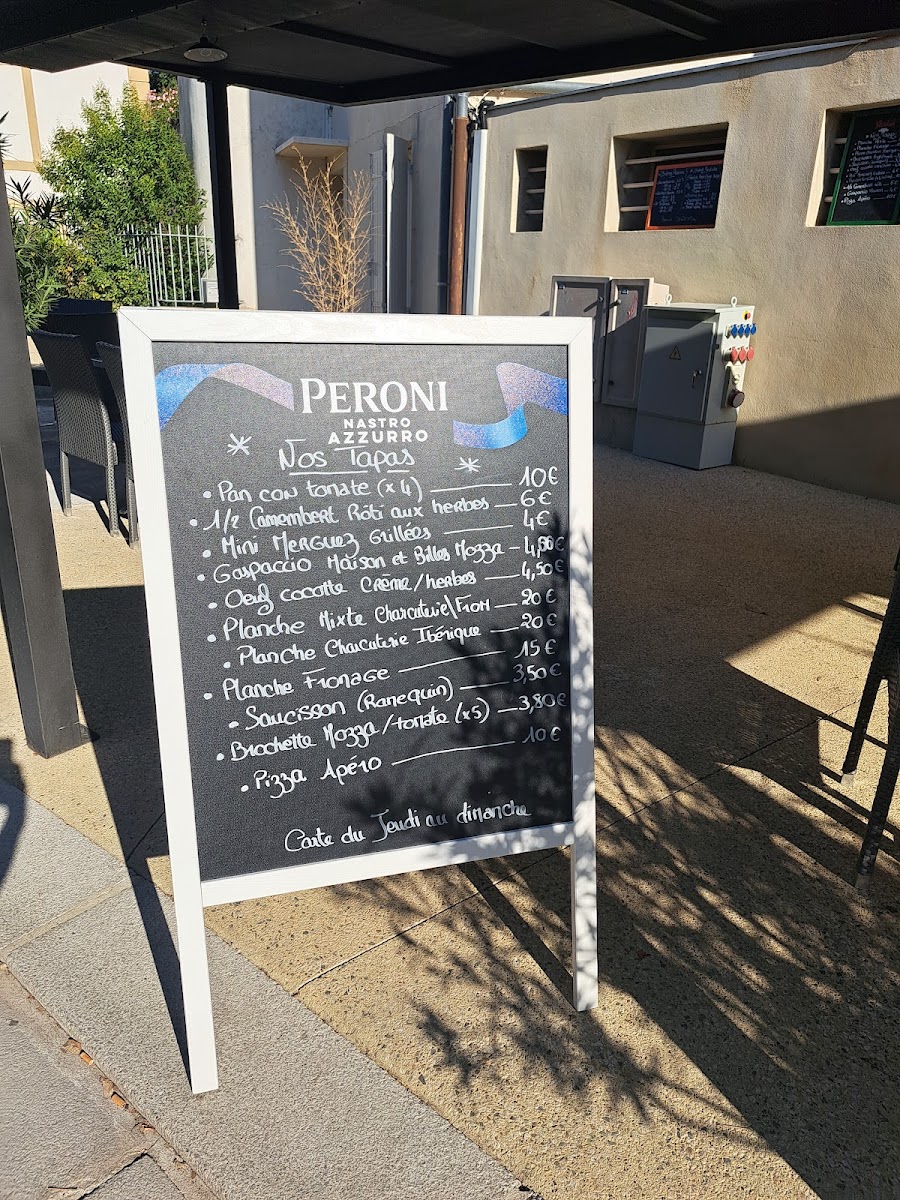 PERONI
NASTRO
AZZURRO
Nos Tapas
• Pan con tomate (x4) 10€
• 1/2 Camembert Rôti aux herbes 6€
• Mini Merguez Grillées 4€
• Gaspaccio Maison et Billes Mozza
• Oeuf cocotte Crème/herbes 4,50€
• Planche Mixte Charcuterie/From 20€
• Planche Charcuterie Ibérique 20€
• Planche Fromage 15€
• Saucisson (Ramequin) 3,50€
• Brochette Mozza/tomate (x5) 3,80€
• Pizza Apéro 10€
Carte du Jeudi au dimanche